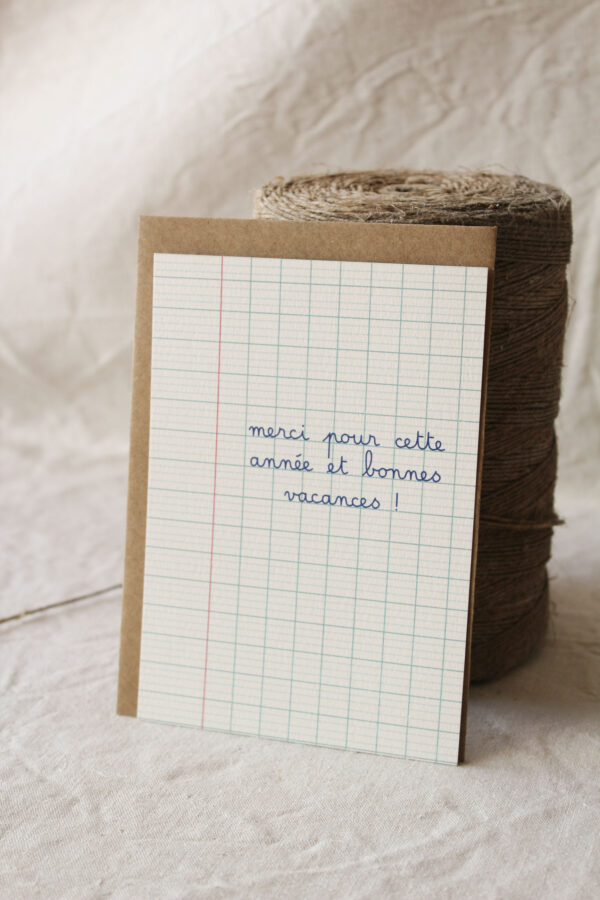 merci pour cette
année et bonnes
vacances !